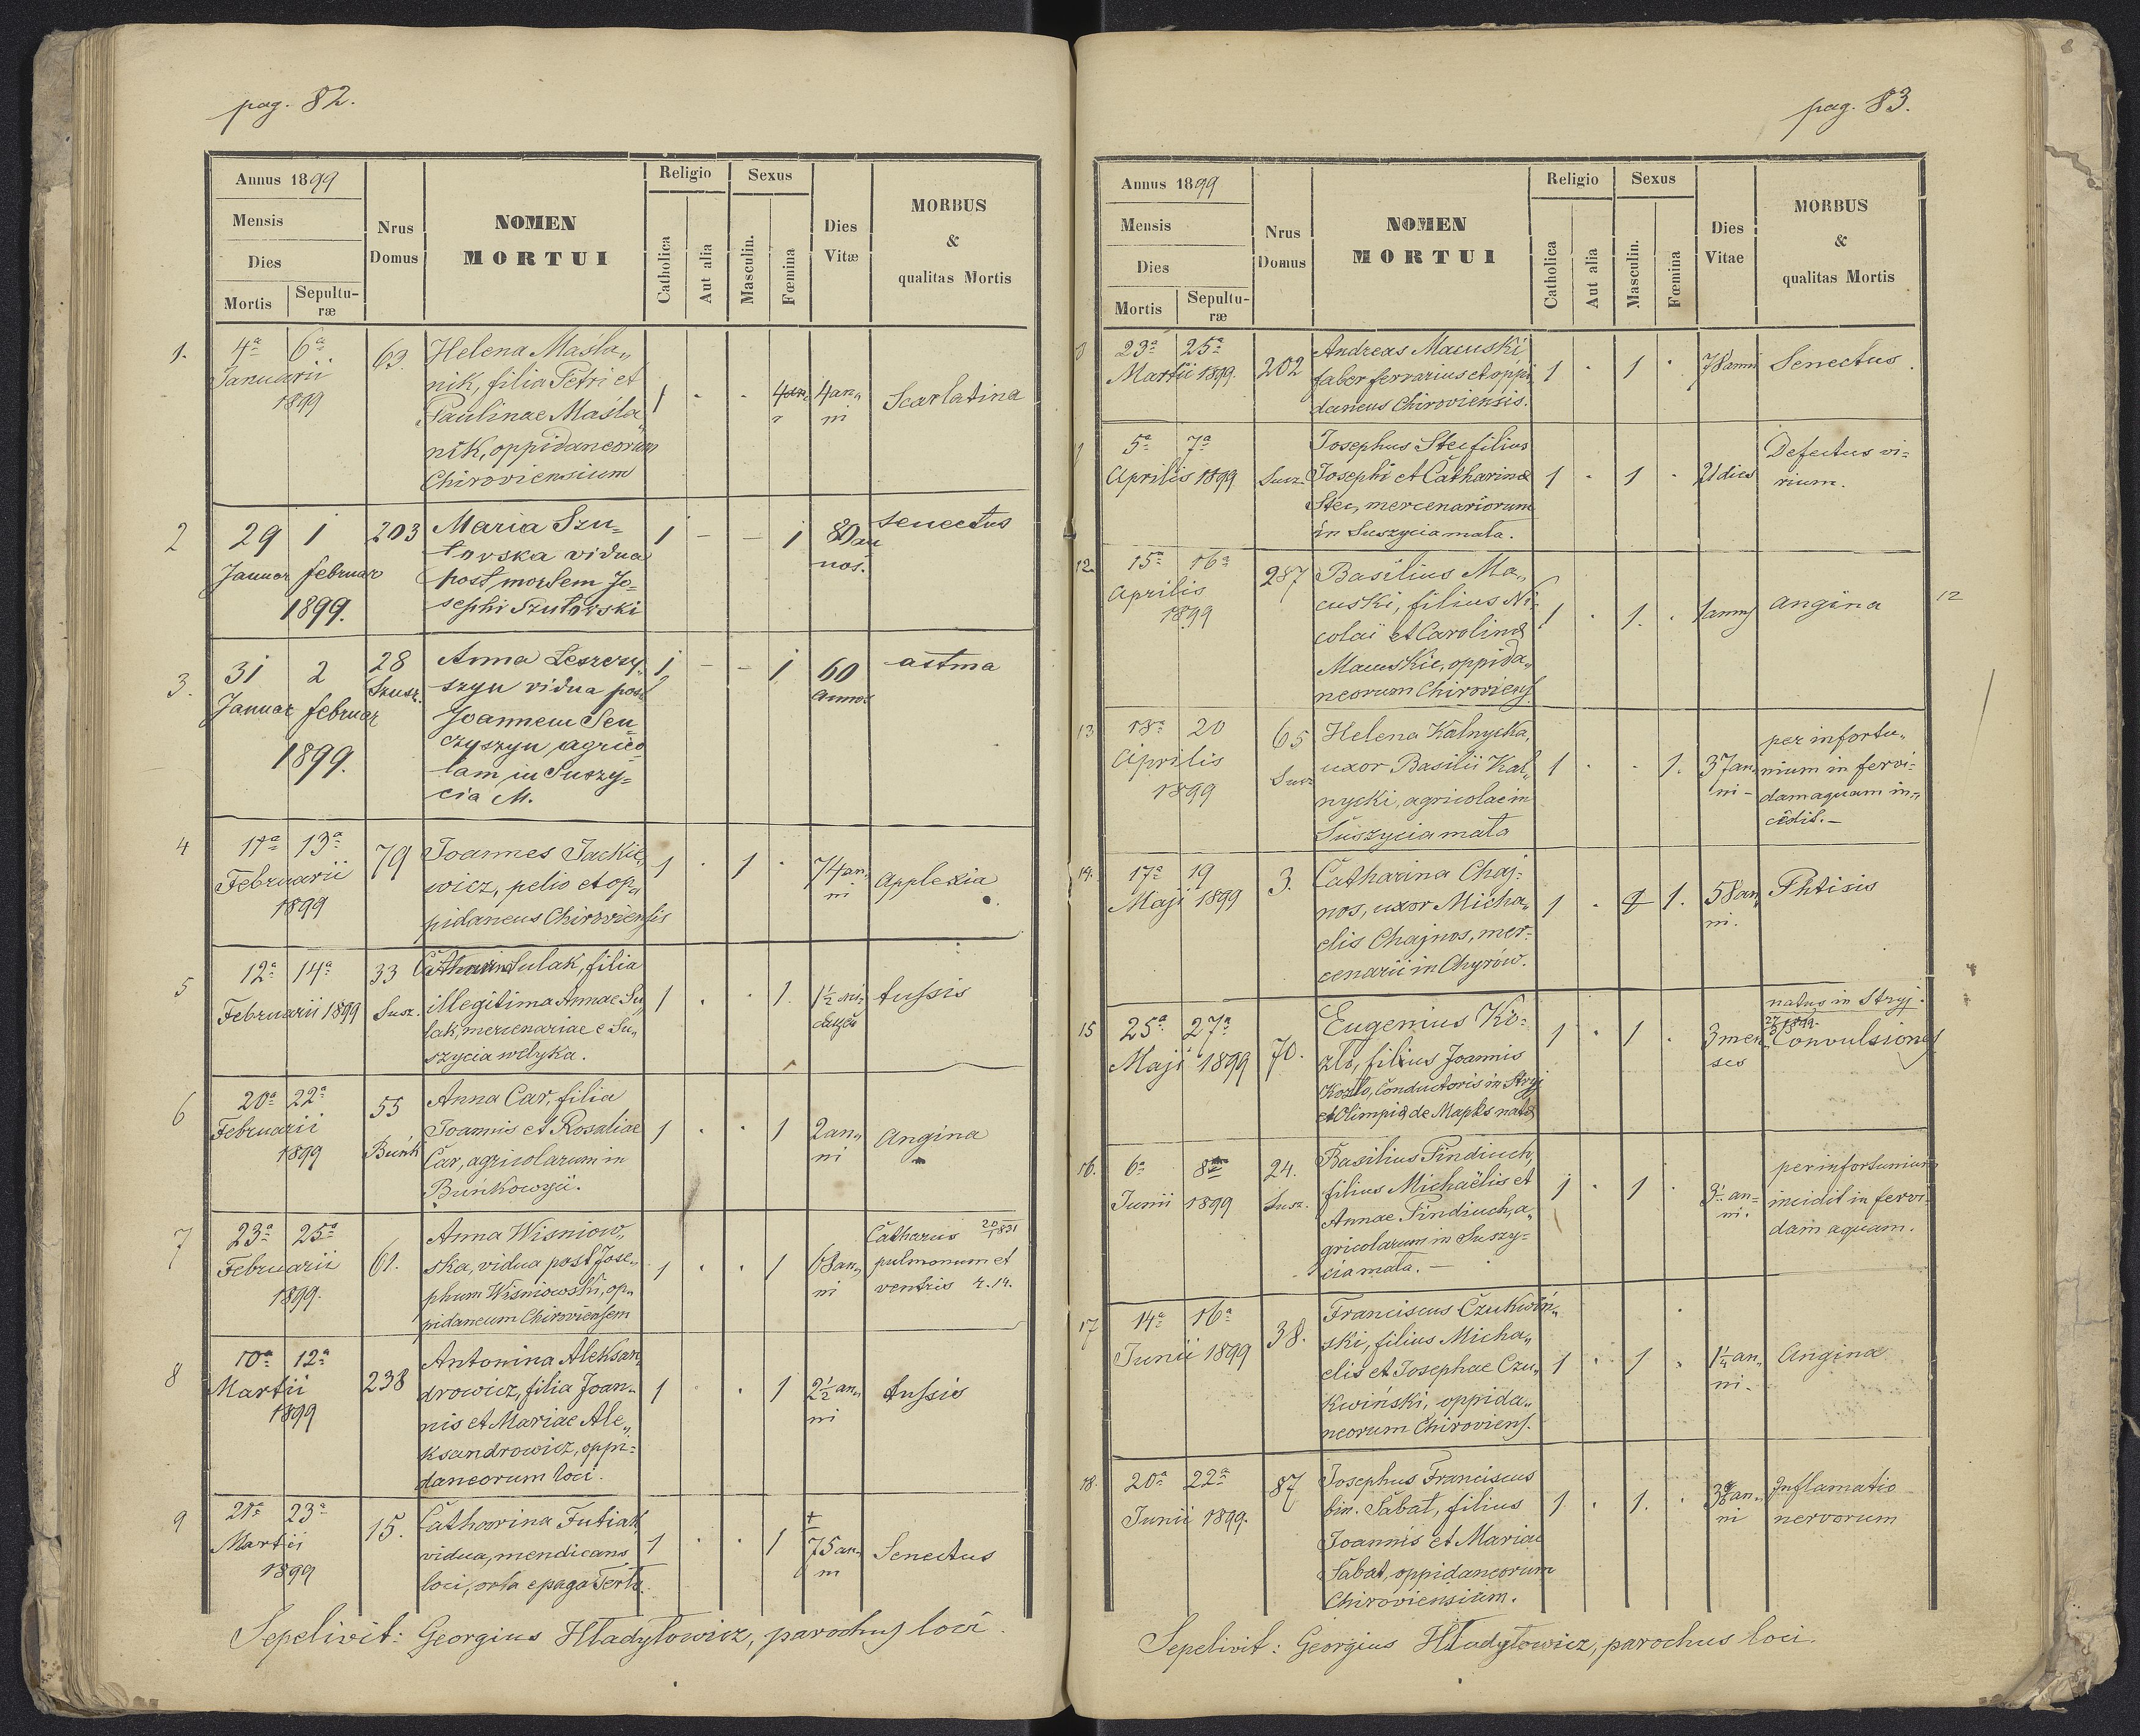 pag. 82.
Annus 1899
Mensis
Dies
Mortis
Sepultu-
ræ
Nrus
Domus
NOMEN
MORTUI
Religio
Catholica
Aut alia
Sexus
Masculin.
Fœmina
Dies
Vitæ
MORBUS
&
qualitas Mortis
1.
4ª 6ª
Januarii
1899
63.
Helena Maśla„
nik, filia Petri et
Paulinae Maśla„
nik, oppidaneorum
Chiroviensium
1 . .
4an„
ni
Scarlatina
2
29 1
Januar februar
1899.
203
Maria Szu=
towska vidua
post mortem Jo=
sephi Szutowski
1 – – 1
80 an
nos.
senectus
3.
31 2
Januar februar
1899.
28
Szusz.
Anna Leszczy„
szyn vidua post
Joannem Sen=
czyszyn agrico
lam in Suszy=
cia M.
1 – – 1
60
annos
astma
4
11ª 13ª
Februarii
1899
79
Joannes Jackie„
wicz, pelio et op„
pidaneus Chirowiensis
1 . 1 .
74an„
ni
Applexia
5
12ª 14ª
Februarii 1899
33
Susz.
Catharina Sulak, filia
illegitima Annae Su„
lak, mercenariae e Su„
szycia wełyka.
1 . . 1.
1½
tussis
6
20ª 22ª
Februarii
1899
55
Buńk
Anna Car, filia
Joannis et Rosaliae
Car, agricolarum in
Buńkowyci.
1 . . 1
2an„
ni
Angina
7
23ª 25ª
Februarii
1899.
61.
Anna Wisniow„
ska, vidua post Jose„
phum Wiśniowski, op„
pidaneum Chirowiensem
1 . . 1
68an„
ni
Catharus 20/1831
pulmonum et
ventris r. 14.
8
10ª 12ª
Martii
1899
238
Antonina Aleksan„
drowicz, filia Joan„
nis et Mariae Ale„
ksandrowicz, oppi=
daneorum loci.
1 . . 1
2½an„
ni
tussis
9
21ª 23ª
Martii
1899
15.
Catharina Futiak
vidua, mendicans
loci, orta e pago Terło.
1 . . 1
75an„
ni
Senectus
Sepelivit: Georgius Hładyłowicz, parochus loci.
pag. 83.
Annus 1899
Mensis
Dies
Mortis
Sepultu-
ræ
Nrus
Domus
NOMEN
MORTUI
Religio
Catholica
Aut alia
Sexus
Masculin.
Fœmina
Dies
Vitae
MORBUS
&
qualitas Mortis
23ª 25ª
Martii 1899.
202
Andreas Macuski
faber ferrarius et oppi„
daneus Chiroviensis.
1 . 1 .
78anni
Senectus.
5ª 7ª
Aprilis 1899
Susz.
Josephus Stec filius
Josephi et Catharinæ
Stec, mercenariorum
in Suszycia mała.
1 . 1 .
21dies
Defectus vi=
rium.
12.
15ª 16ª
Aprilis
1899
287
Basilius Ma„
cuski, filius Ni„
colai et Carolinæ
Macuskie, oppida„
neorum Chirowiens.
1 . 1. .
1annus
Angina
12
13
18ª 20
Aprilis
1899
65
Susz
Helena Kalnycka,
uxor Basilii Kal„
nycki, agricolae in
Suszycia mała
1 . . 1.
37an„
ni -
per infortu„
nium in fervi=
dam aquam in„
cidit.-
14.
17ª 19
Maji 1899
3.
Catharina Chaj=
nos, uxor Micha„
elis Chajnos, mer=
cenarii in Chyrów.
1 . 1.
58an„
ni.
Phtisis
15
25ª 27ª
Maji 1899
70.
Eugenius Ko=
zło, filius Joannis
Kozło, Conductoris in Stryj
et Olimpiæ de Mapks natæ
1 . 1 .
3men
ses
natus in Stryj.
Convulsiones
16.
6ª 8ª
Junii 1899
24.
Susz.
Basilius Findiuch,
filius Michaëlis et
Annae Findiuch, a„
gricolarum in Suszy=
cia mała.-
1 . 1 .
an=
ni.
per infortunium
incidit in fervi
dam aquam.
17
14ª 16ª
Junii 1899
38.
Franciscus Czukwiń„
ski, filius Micha„
elis et Josephae Czu„
kwiński, oppida„
neorum Chiroviens.
1 . 1 .
1¼an„
ni.
Angina
18.
20ª 22ª
Junii 1899.
87
Josephus Franciscus
bin. Sabat, filius
Joannis et Mariae
Sabat, oppidaneorum
Chiroviensium.
1 . 1. .
an„
ni
Inflamatio
nervorum
Sepelivit: Georgius Hładyłowicz, parochus loci.